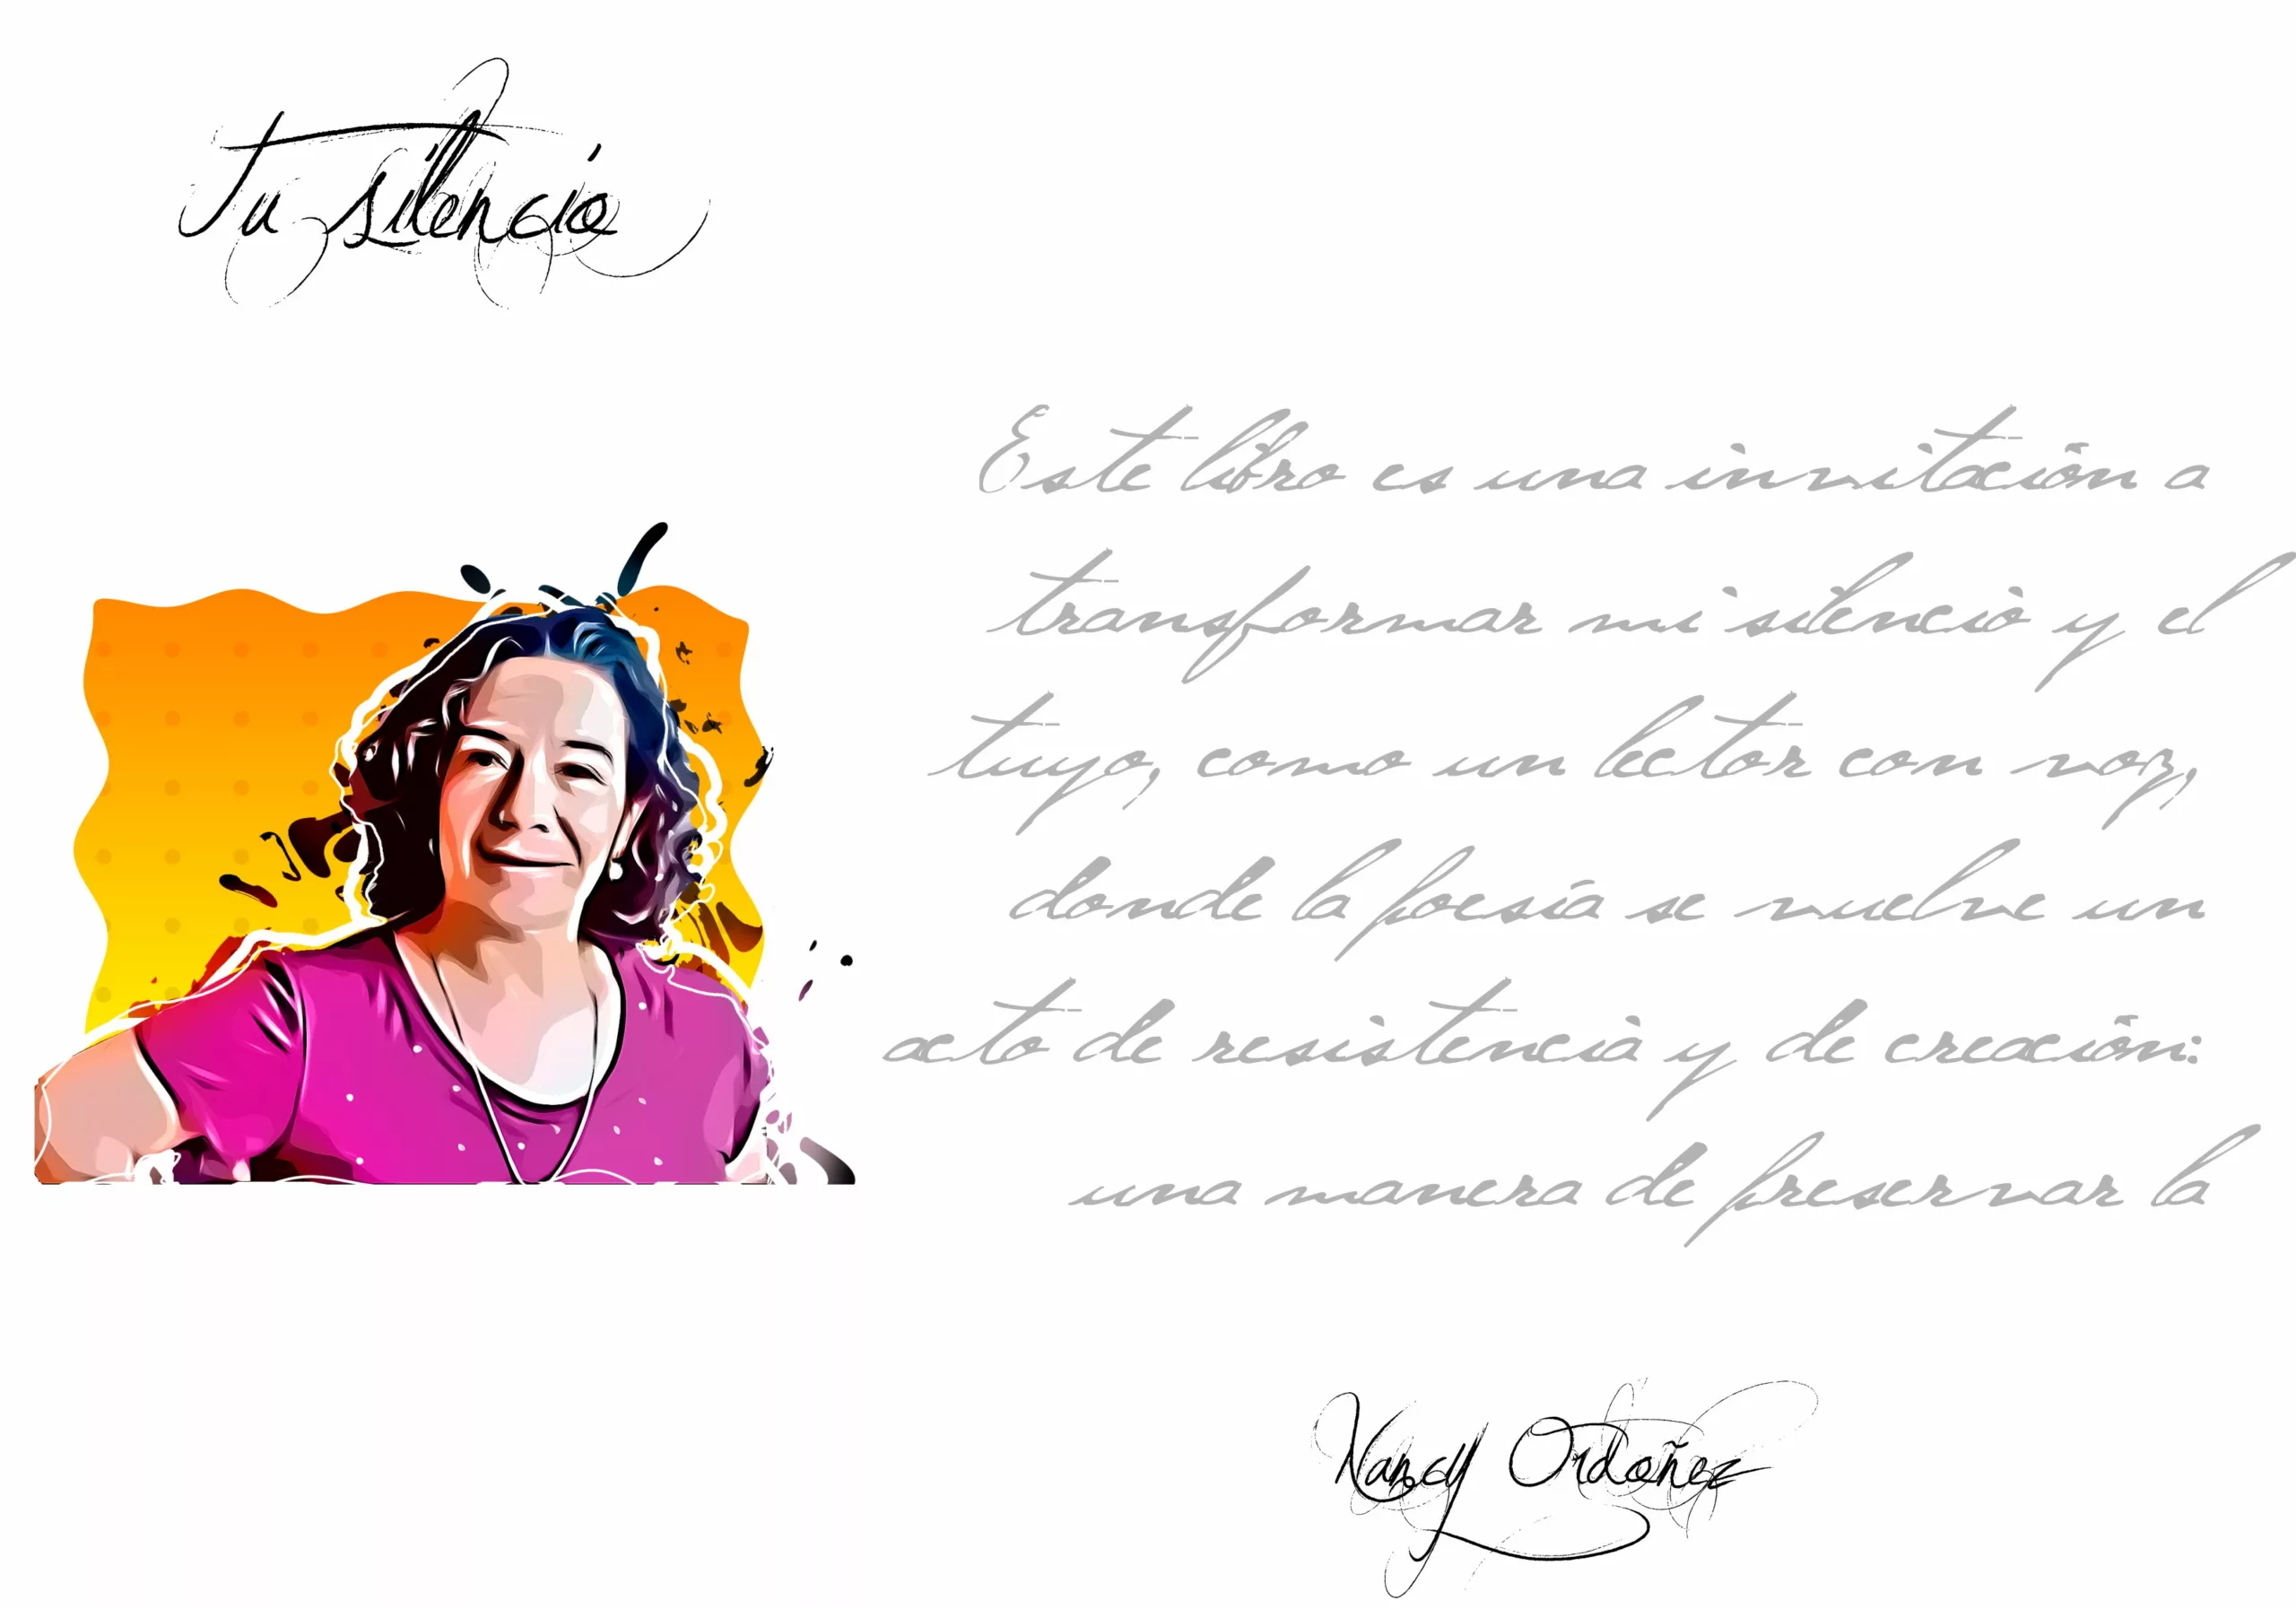 Tu silencio
Este libro es una invitación a
transformar mi silencio y el
tuyo, como un lector con voz,
donde la poesía se vuelve un
acto de resistencia y de creación:
una manera de preservar la
Nancy Ordoñez